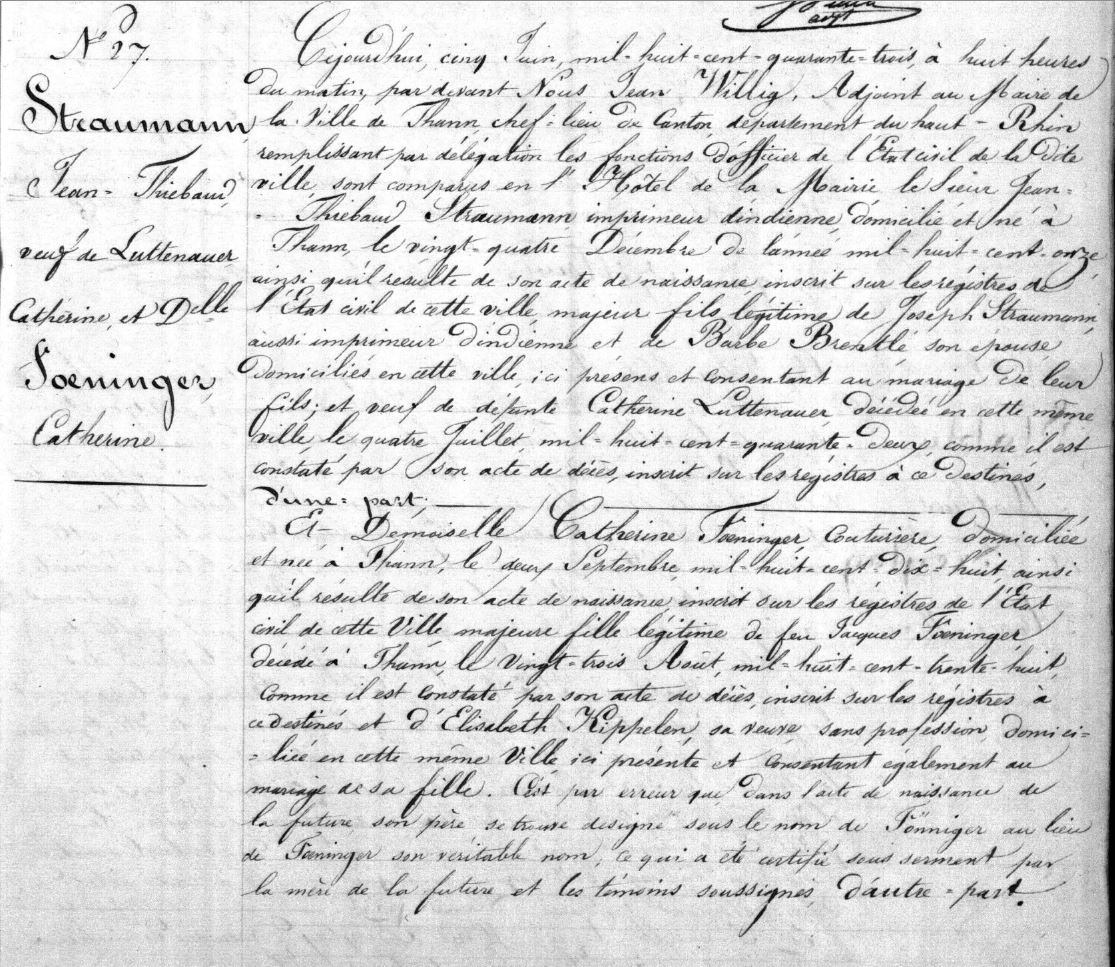 N° 27.
Straumann
Jean-Thiebaud,
veuf de Luttenauer
Catherine, et Delle
Fœninger,
Catherine
Cejourd'hui, cinq Juin, mil-huit-cent-quarante-trois, à huit heures
du matin, par devant Nous Jean Willig, Adjoint au Maire de
la Ville de Thann, chef-lieu de Canton département du haut-Rhin
remplissant par délégation les fonctions d'officier de l'Etat civil de la dite
ville, sont comparus en l'Hôtel de la Mairie le Sieur Jean-
-Thiébaud Straumann imprimeur d'indienne, domicilié et né à
Thann, le vingt-quatre Décembre de l'année mil-huit-cent-onze
ainsi qu'il résulte de son acte de naissance inscrit sur les régistres de
l'Etat civil de cette ville, majeur fils légitime de Joseph Straumann,
aussi imprimeur d'indienne et de Barbe Brentlé son épouse
domiciliés en cette ville, ici présens et consentant au mariage de leur
fils; et veuf de défunte Catherine Luttenauer décédée en cette même
ville le quatre Juillet, mil-huit-cent-quarante-deux, comme il est
constaté par son acte de décès, inscrit sur les régistres à ce destinés,
d'une-part;
Et Demoiselle Catherine Fœninger Couturière, domiciliée
et née à Thann, le deux Septembre, mil-huit-cent-dix-huit, ainsi
qu'il résulte de son acte de naissance, inscrit sur les régistres de l'Etat
civil de cette Ville, majeure fille légitime de feu Jacques Fœninger
décédé à Thann, le Vingt-trois Août, mil-huit-cent-trente-huit,
comme il est constaté par son acte de décès, inscrit sur les régistres à
ce destinés et d'Elisabeth Kippelen, sa veuve sans profession domici-
-liée en cette même Ville ici présente et consentant egalement au
mariage de sa fille. C'est par erreur que, dans l'acte de naissance de
la future son père se trouve designé sous le nom de Fönniger au lieu
de Fœninger son veritable nom, ce qui a été certifié sous serment par
la mère de la future et les témoins soussignés, d'autre-part.